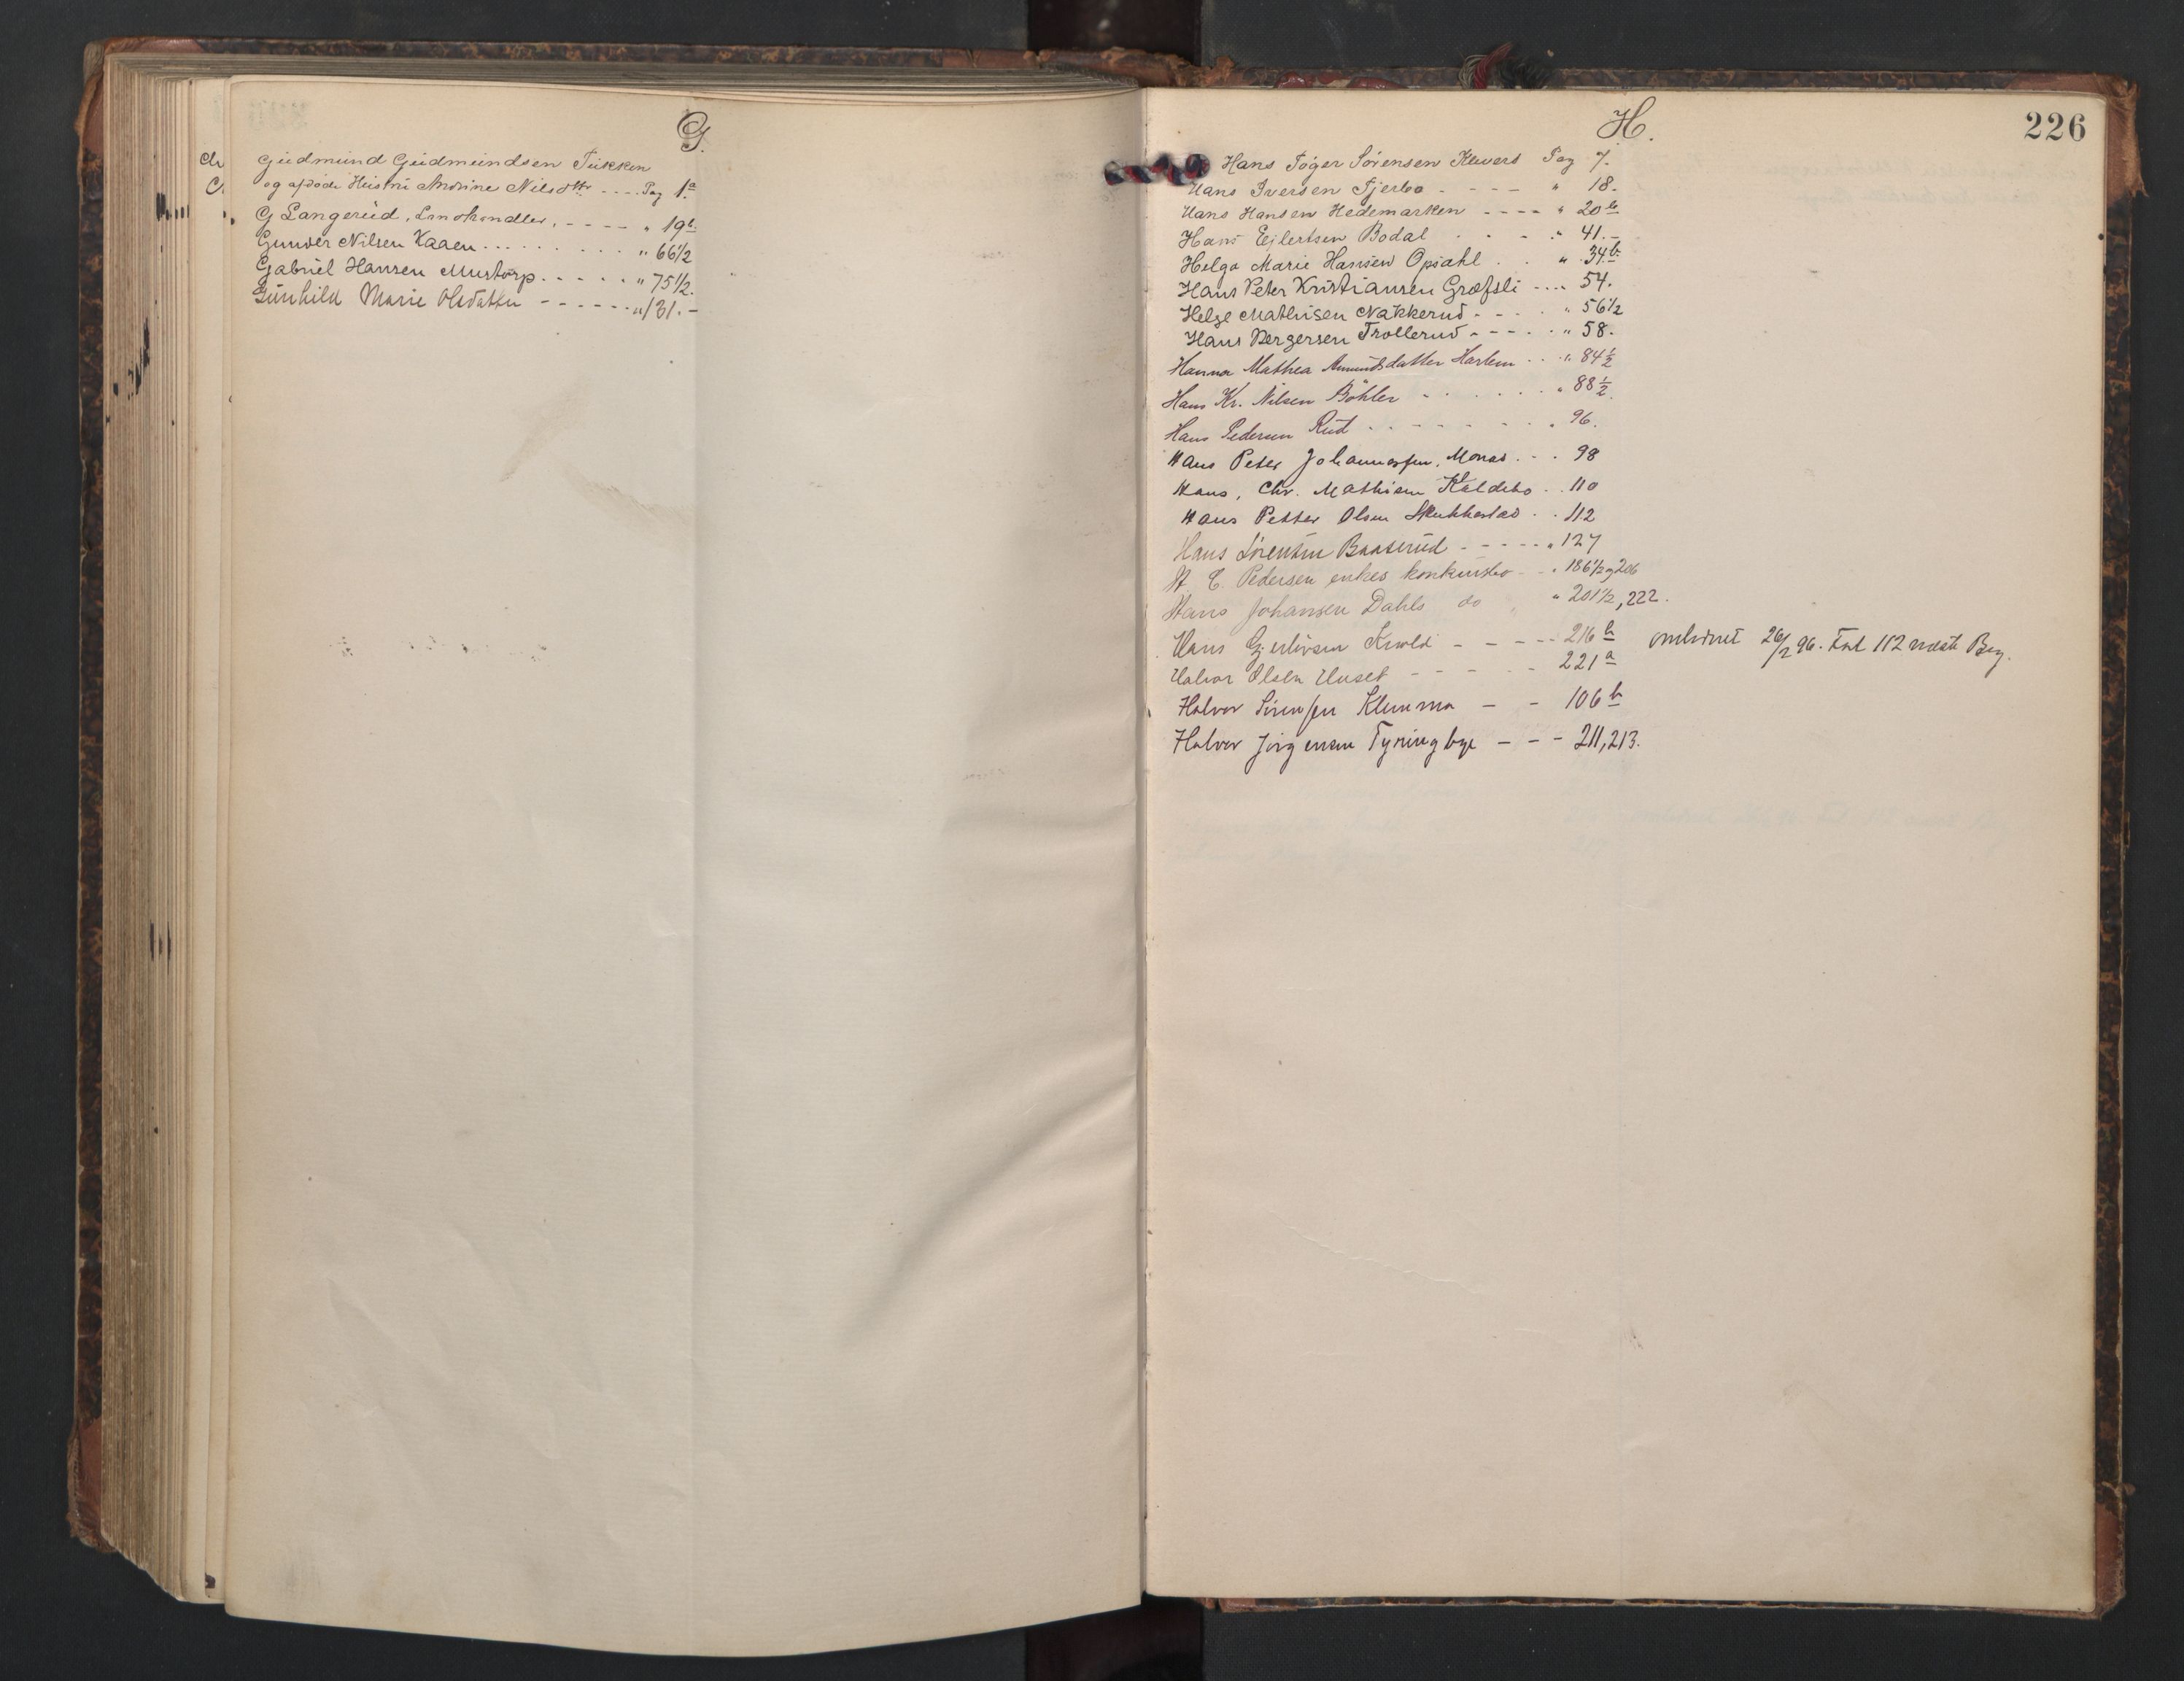 G.
Gudmund Gudmundsen Tükken
og afdøde Hustru Andrine Nilsdttr - - - - Pag 1a
G Langerüd, Landhandler, - - - - - " 19b.
Gunder Nilsen Kaaen . . . . . . . . . " 66 1/2
Gabriel Hansen Mustorp. - - - - - " 75 1/2.
Günhild Marie Olsdatter - - - - - - " 131. -
H.
226
Hans Töger Sörensen Klevers Pag 7.
Hans Iversen Fjerbo - - - - - " 18.
Hans Hansen Hedemarken - - - - " 20 b
Hans Ejlertsen Bodal . - - - . " 41. -
Helga Marie Hansen Opsahl . . " 34. b.
Hans Peter Kristiansen Græfsli - - . . 54.
Helge Mathisen Nakkerud - - - . " 56 1/2
Hans Bergersen Trollerud - - - - . " 58.
Hanna Mathea Amundsdatter Harlem . . . " 84 1/2
Hans Kr. Nilsen Böhler - . . . . . " 88 1/2.
Hans Pedersen Rud . . - - - - . . " 96.
Hans Peter Johannesen, Monas . - . 98
Hans, Chr. Mathisen Kaldebo . . 110
Hans Petter Olsen Skukkestad . . 112
Hans Lorentsen Baaserüd - - - - - " 127
H C. Pedersen enkes konkursbo - - " 186 1/2 og 206
Hans Johansen Dahls do " " 201 1/2, 222.
Hans Gjertsen - - - - 216 b 26/2 96. Fol 112 næste Bog.
Halvor Olsen Huset - - - - - 221 a
Halvor Sörensen Klemma - - 106 b
Halvor Jörgensen Tyringbye - - - 211, 213.